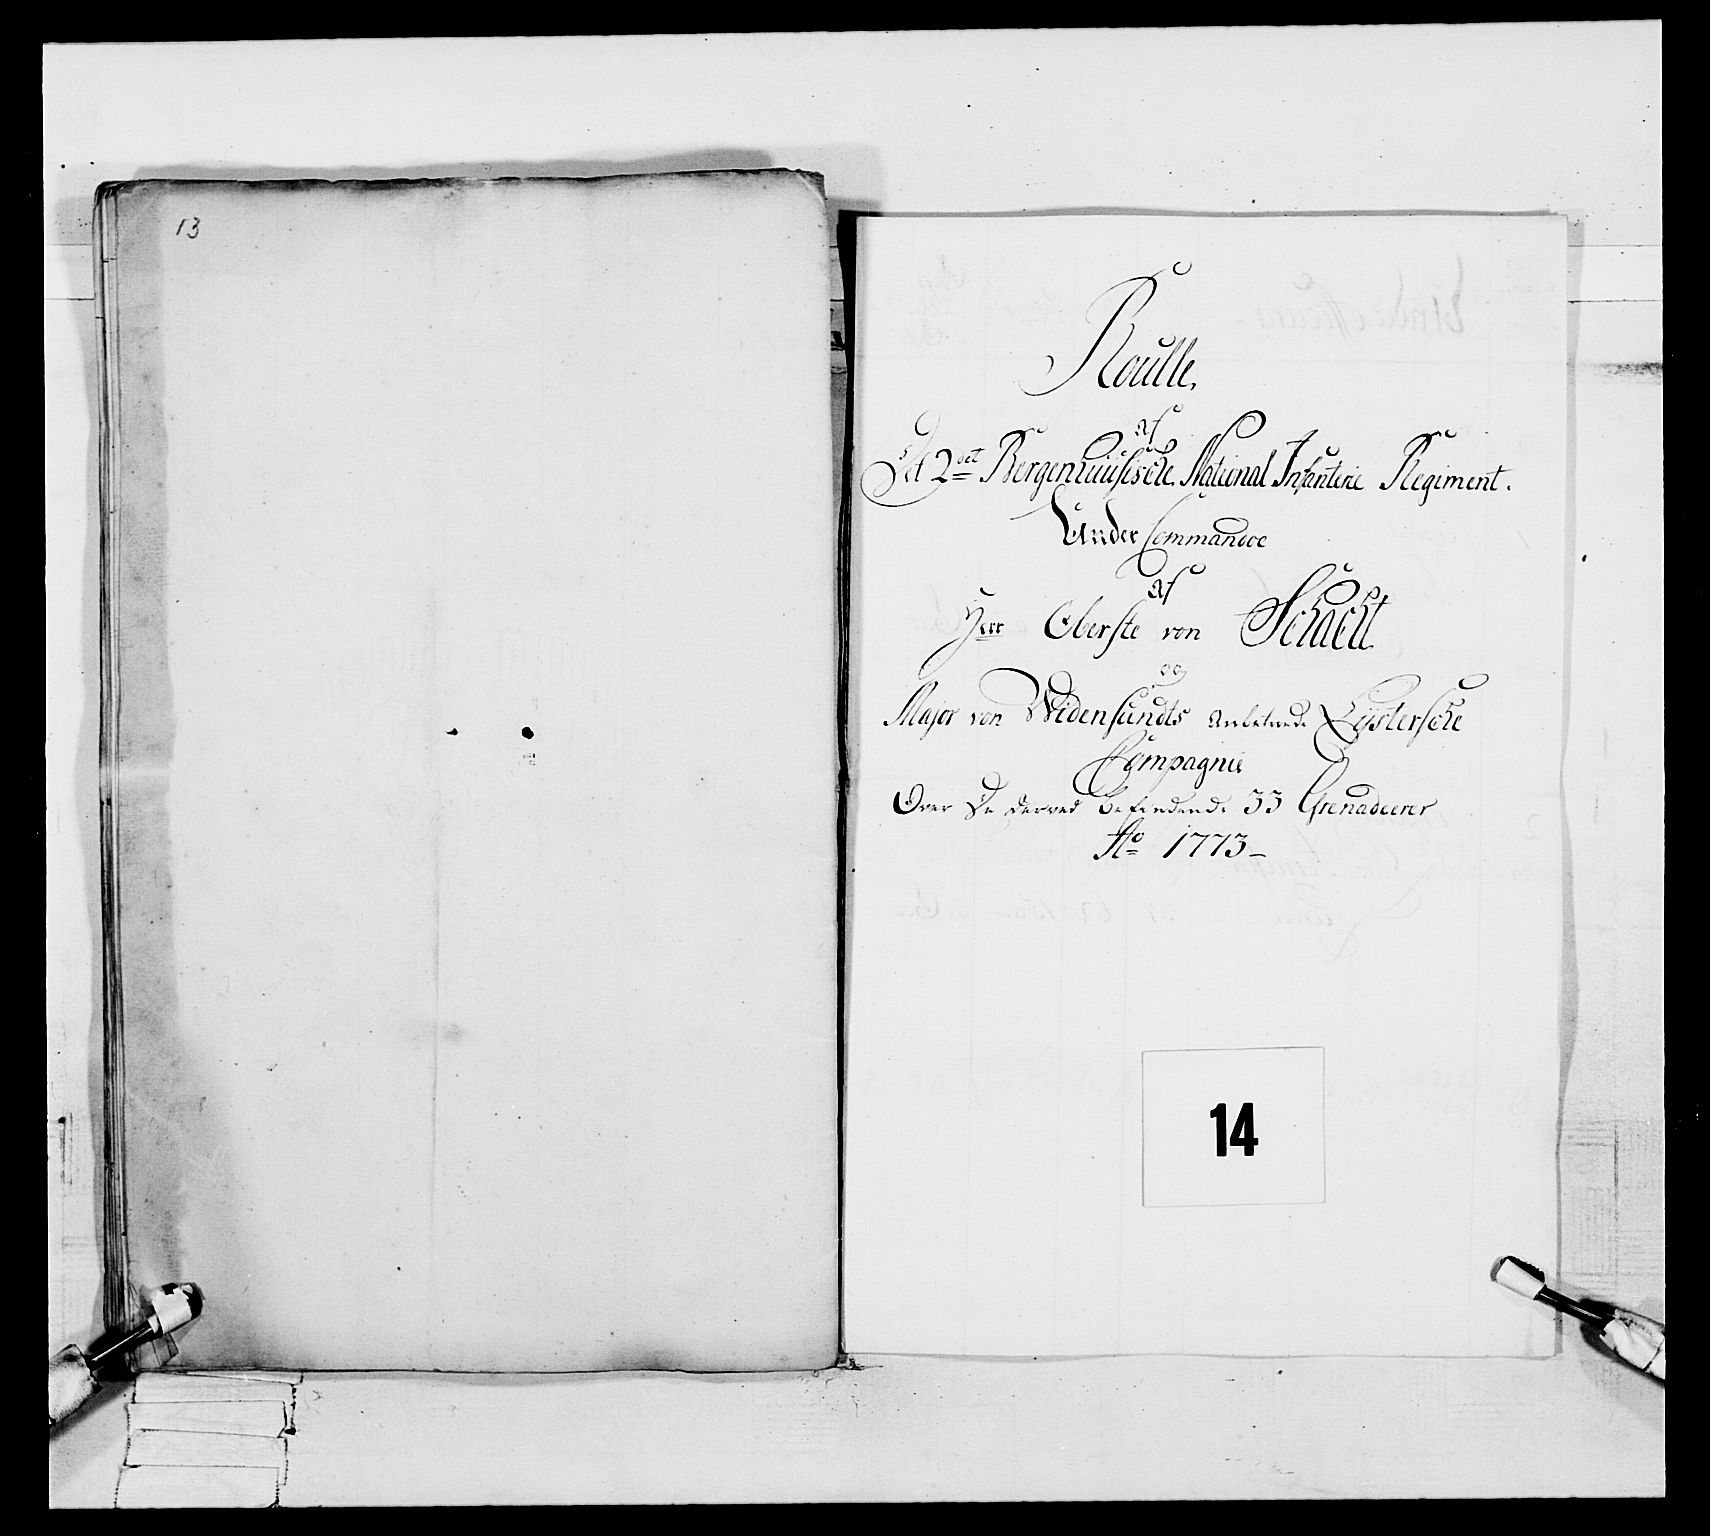 13
Roulle.
af
Det 2det Bergenhuusische National Infanterie Regiment.
Under Commandoe
Af
Herr Oberste von Schacht
og
Major von Widensundts Anbetroede Lÿstersche
Compagnie
Over De derved befindende 33 Grenadeerer
Ao 1773
14